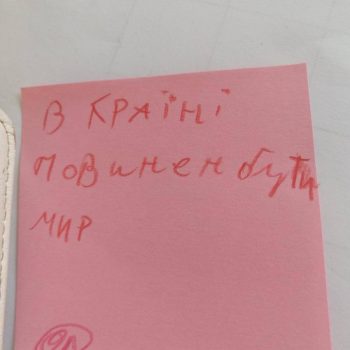 В КРАЇНІ
ПОВИНЕН бУТИ
МИР